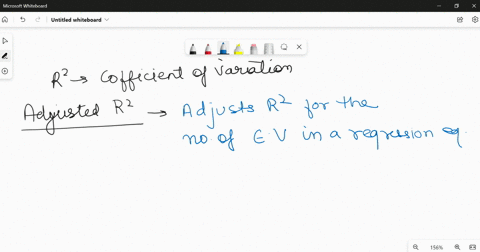 Microsoft Whiteboard
Untitled whiteboard
R² → Coefficient of Variation
Adjusted R² → Adjusts R² for the
no of E.V in a regression eq.
156%